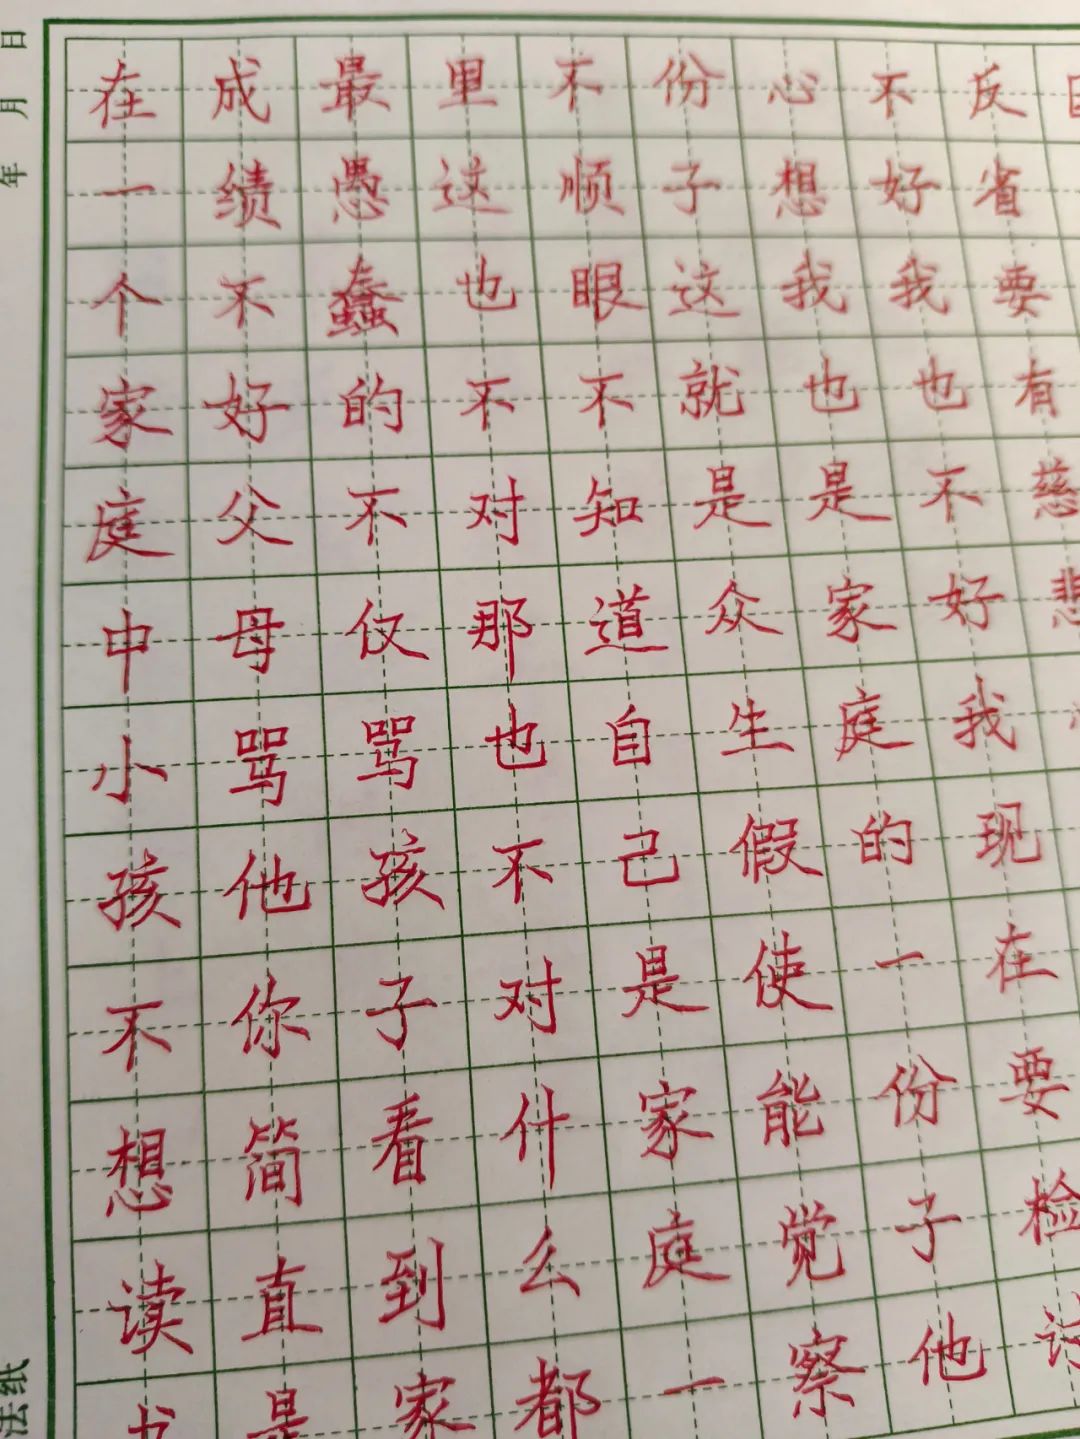 年 月 日
在一个家庭中小孩不想读书
成绩不好父母骂他你简直是
最愚蠢的不仅骂孩子看到家
里这也不对那也不对什么都
不顺眼不知道自己是家庭一
份子这就是众生假使能觉察
心想我也是家庭的一份子他
不好我也不好我现在要检讨
反省要有慈悲
法纸